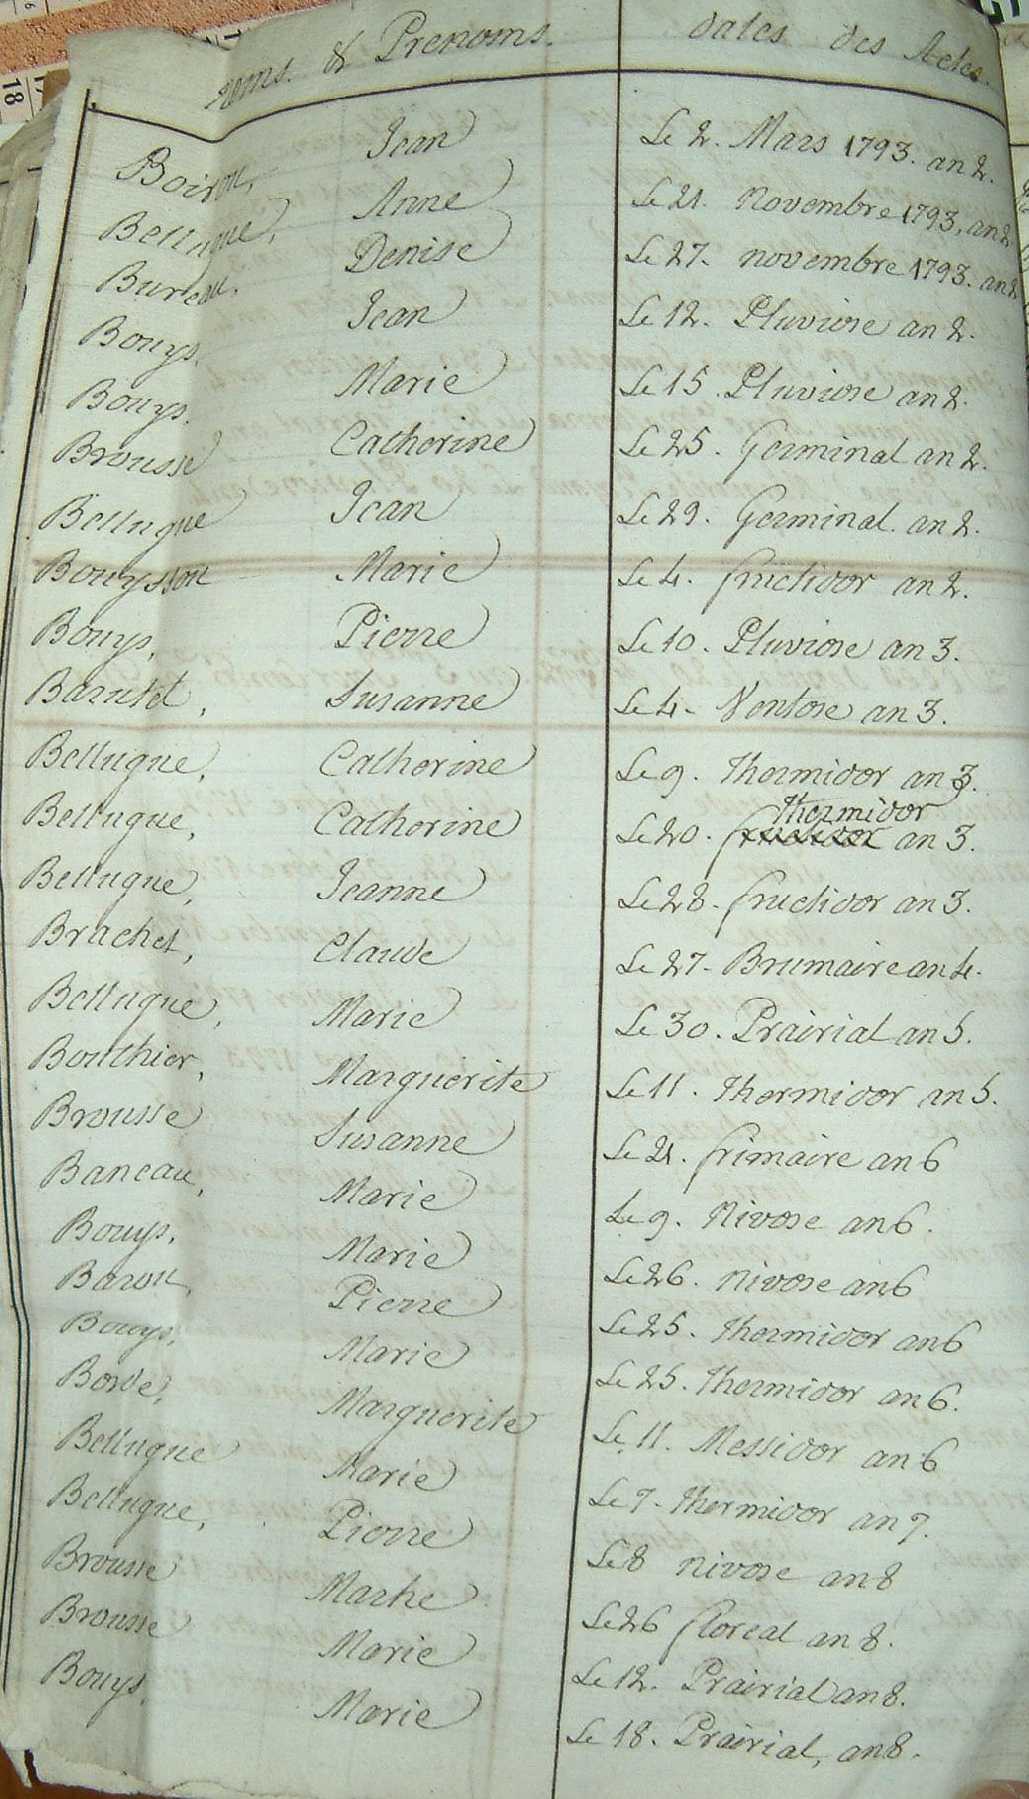 Noms & Prenoms. dates des Actes.
Boirou, Jean Le 2. Mars 1793. an 2.
Bellugue, Anne Le 21. Novembre 1793, an 2
Bureau. Denise Le 27. novembre 1793. an 2
Bouys, Jean Le 12. Pluviose an 2.
Bouys. Marie Le 15. Pluviose an 2.
Brousse Catherine Le 25. Germinal an 2.
Bellugue Jean Le 29. Germinal. an 2.
Bouysson Marie Le 4. fructidor an 2.
Bouys, Pierre Le 10. Pluviose an 3.
Barutel, Susanne Le 4. Ventose an 3.
Bellugue, Catherine Le 9. Thermidor an 3.
Thermidor
Bellugue, Catherine Le 20. fructidor an 3.
Bellugue, Jeanne Le 28. fructidor an 3.
Brachet, Claude Le 27. Brumaire an 4.
Bellugue, Marie Le 30. Prairial an 5.
Bouthier, Marguerite Le 11. Thermidor an 5.
Brousse Susanne Le 21. frimaire an 6
Baneau, Marie Le 9. Nivose an 6.
Bouys, Marie Le 26. Nivose an 6
Barou, Pierre Le 25. Thermidor an 6
Bouys, Marie Le 25. Thermidor an 6.
Borde, Marguerite Le 11. Messidor an 6
Bellugue Marie Le 7. thermidor an 7.
Bellugue, Pierre Le 8 nivose an 8
Brousse Marthe Le 26 floreal an 8.
Brousse Marie Le 12. Prairial an 8.
Bouys, Marie Le 18. Prairial, an 8.
18
17
6